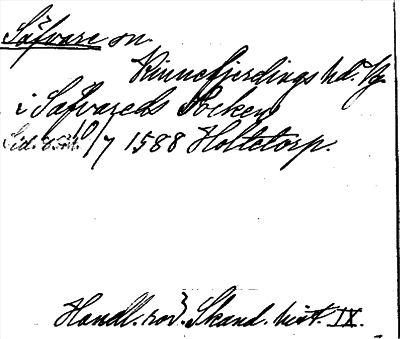 Säfvare sn.
Kinnefjerdings hd. Vg.
i Säfvareds Socken
10/7 1588 Holtetorp.
Handl. rör. Skand. hist. IX.